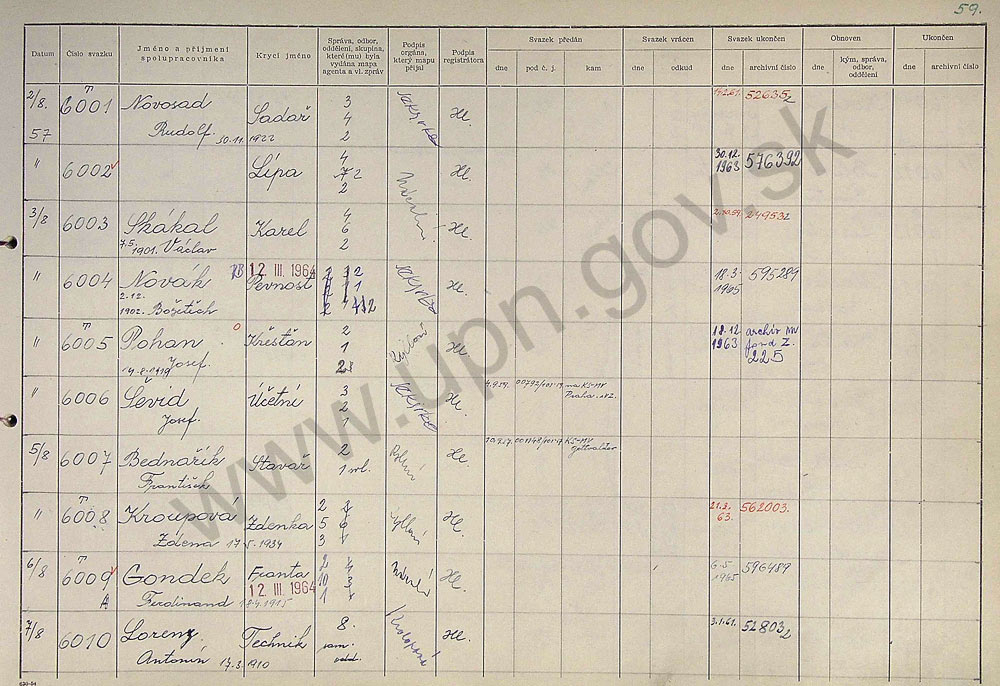 59.
Datum Číslo svazku Jméno a příjmení spolupracovníka Krycí jméno Správa, odbor, oddělení, skupina, které(mu) byla vydána mapa agenta a vl. zpráv Podpis orgána, který mapu přijal Podpis registrátora Svazek předán Svazek vrácen Svazek ukončen Obnoven Ukončen
dne pod č. j. kam dne odkud dne archivní číslo dne kým, správa, odbor, oddělení dne archivní číslo
2/8. T 6001 Novosad Sadař 3 4 2 Hl. 52635/2
57 Rudolf. 30.11.1922
" 6002 Lípa 4 2 Hl. 30.12. 1963 576392
3/8 6003 Skákal Karel 4 6 2 Hl. 2.10.59. 24953/2
7.5. 1901. Václav
" 6004 Novák 12 III. 1964 Pevnost Hl. 18.3. 1965 595289
2.12. 1902. Božetěch
" T 6005 Pohan Křesťan 2 1 Hl. 18.12. 1963 archiv MV fond Z. 225
14.8.1919 Josef.
" 6006 Ševid Účetní 3 2 1 Hl. 4.9.59. na KS-MV Praha
Josef.
5/8 6007 Bednařík Stavař 2 Hl. KS-MV Gottwaldov
František
" T 6008 Kroupová Zdenka 2 5 6 3 Hl. 21.3. 63. 562003.
Zdena 17.5.1934
6/8 T 6009 Gondek Franta 2 4 10 3 1 Hl. 6.5. 1965 596489
A Ferdinand 12 III. 1964
7/8 6010 Lorenz Technik 8. Hl. 3.1.61. 52803/2
Antonín 17.3.1910
www.upn.gov.sk